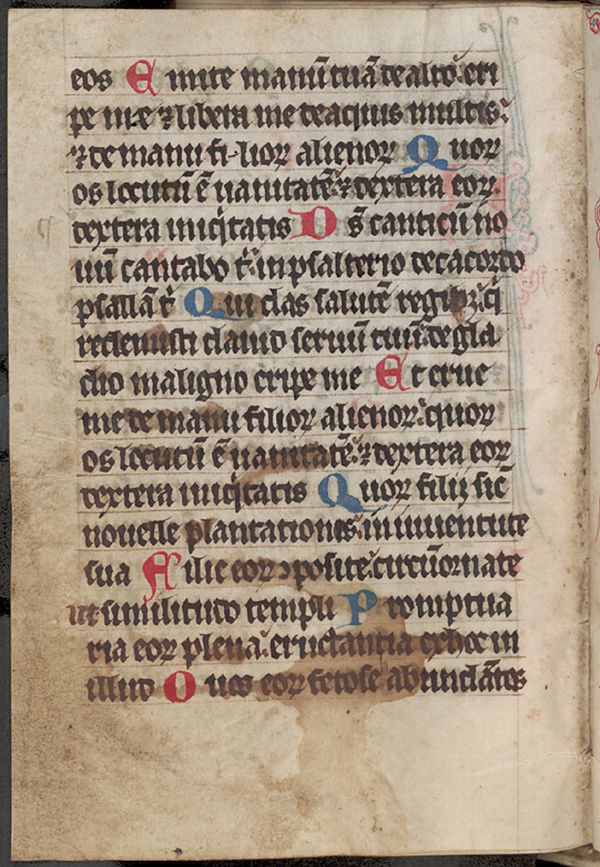 eos Emitte manū tuā de alto: eri
pe me ⁊ libera me de aquis multis:
⁊ de manu filioꝝ alienoꝝ Quoꝝ
os locutū ē uanitatē: ⁊ dextera eoꝝ
dextera iniqͥtatis Ds̄ canticū no
uū cantabo tͥ: in psalterio decacordo
psallā tͥ Qui das salutē regibꝫ: qͥ
redemisti dauid seruū tuū: de gla
dio maligno eripe me Et erue
me de manu filioꝝ alienoꝝ: quoꝝ
os locutū ē uanitatē: ⁊ dextera eoꝝ
dextera iniqͥtatis Quoꝝ filij sic̄
nouelle plantationes: in iuuentute
sua Filie eoꝝ ꝯposite: circūornate
ut similitudo templi Promptua
ria eoꝝ plena: eructantia ex hoc in
illud Oues eoꝝ fetose abundātes